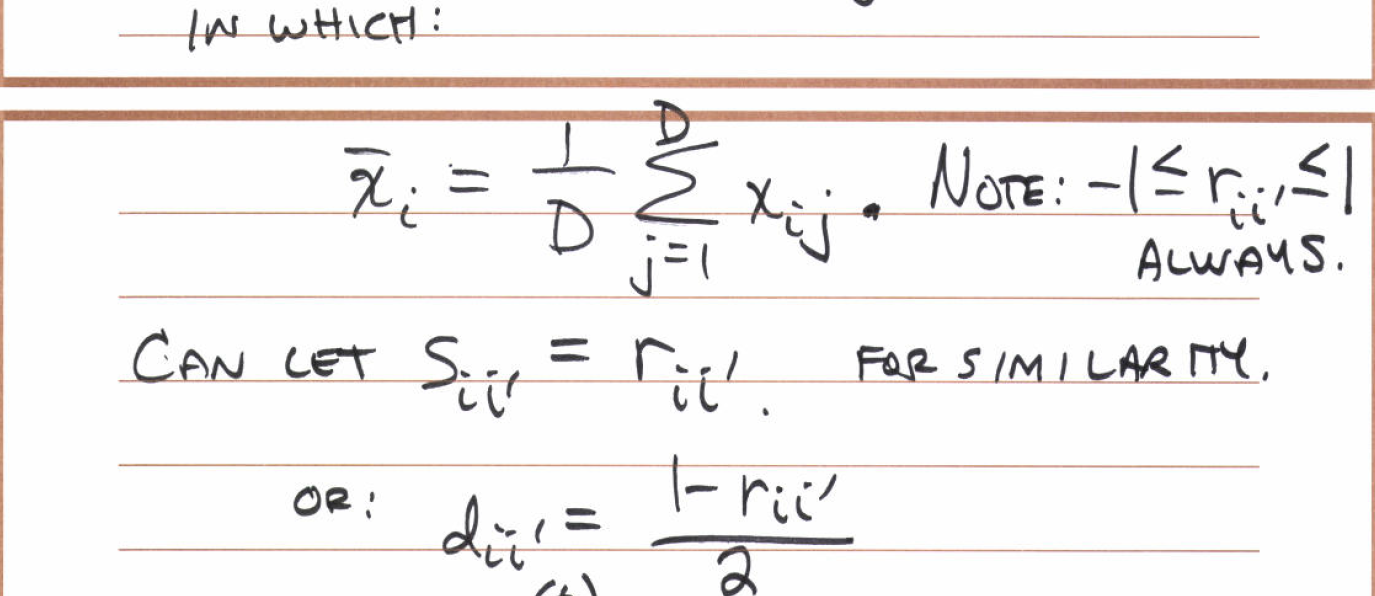 IN WHICH:
x̄ᵢ = 1/D ∑_{j=1}^{D} x_{ij}. NOTE: -1 ≤ r_{ii'} ≤ 1
ALWAYS.
CAN LET S_{ii'} = r_{ii'}. FOR SIMILARITY.
OR: d_{ii'} = (1 - r_{ii'})/2